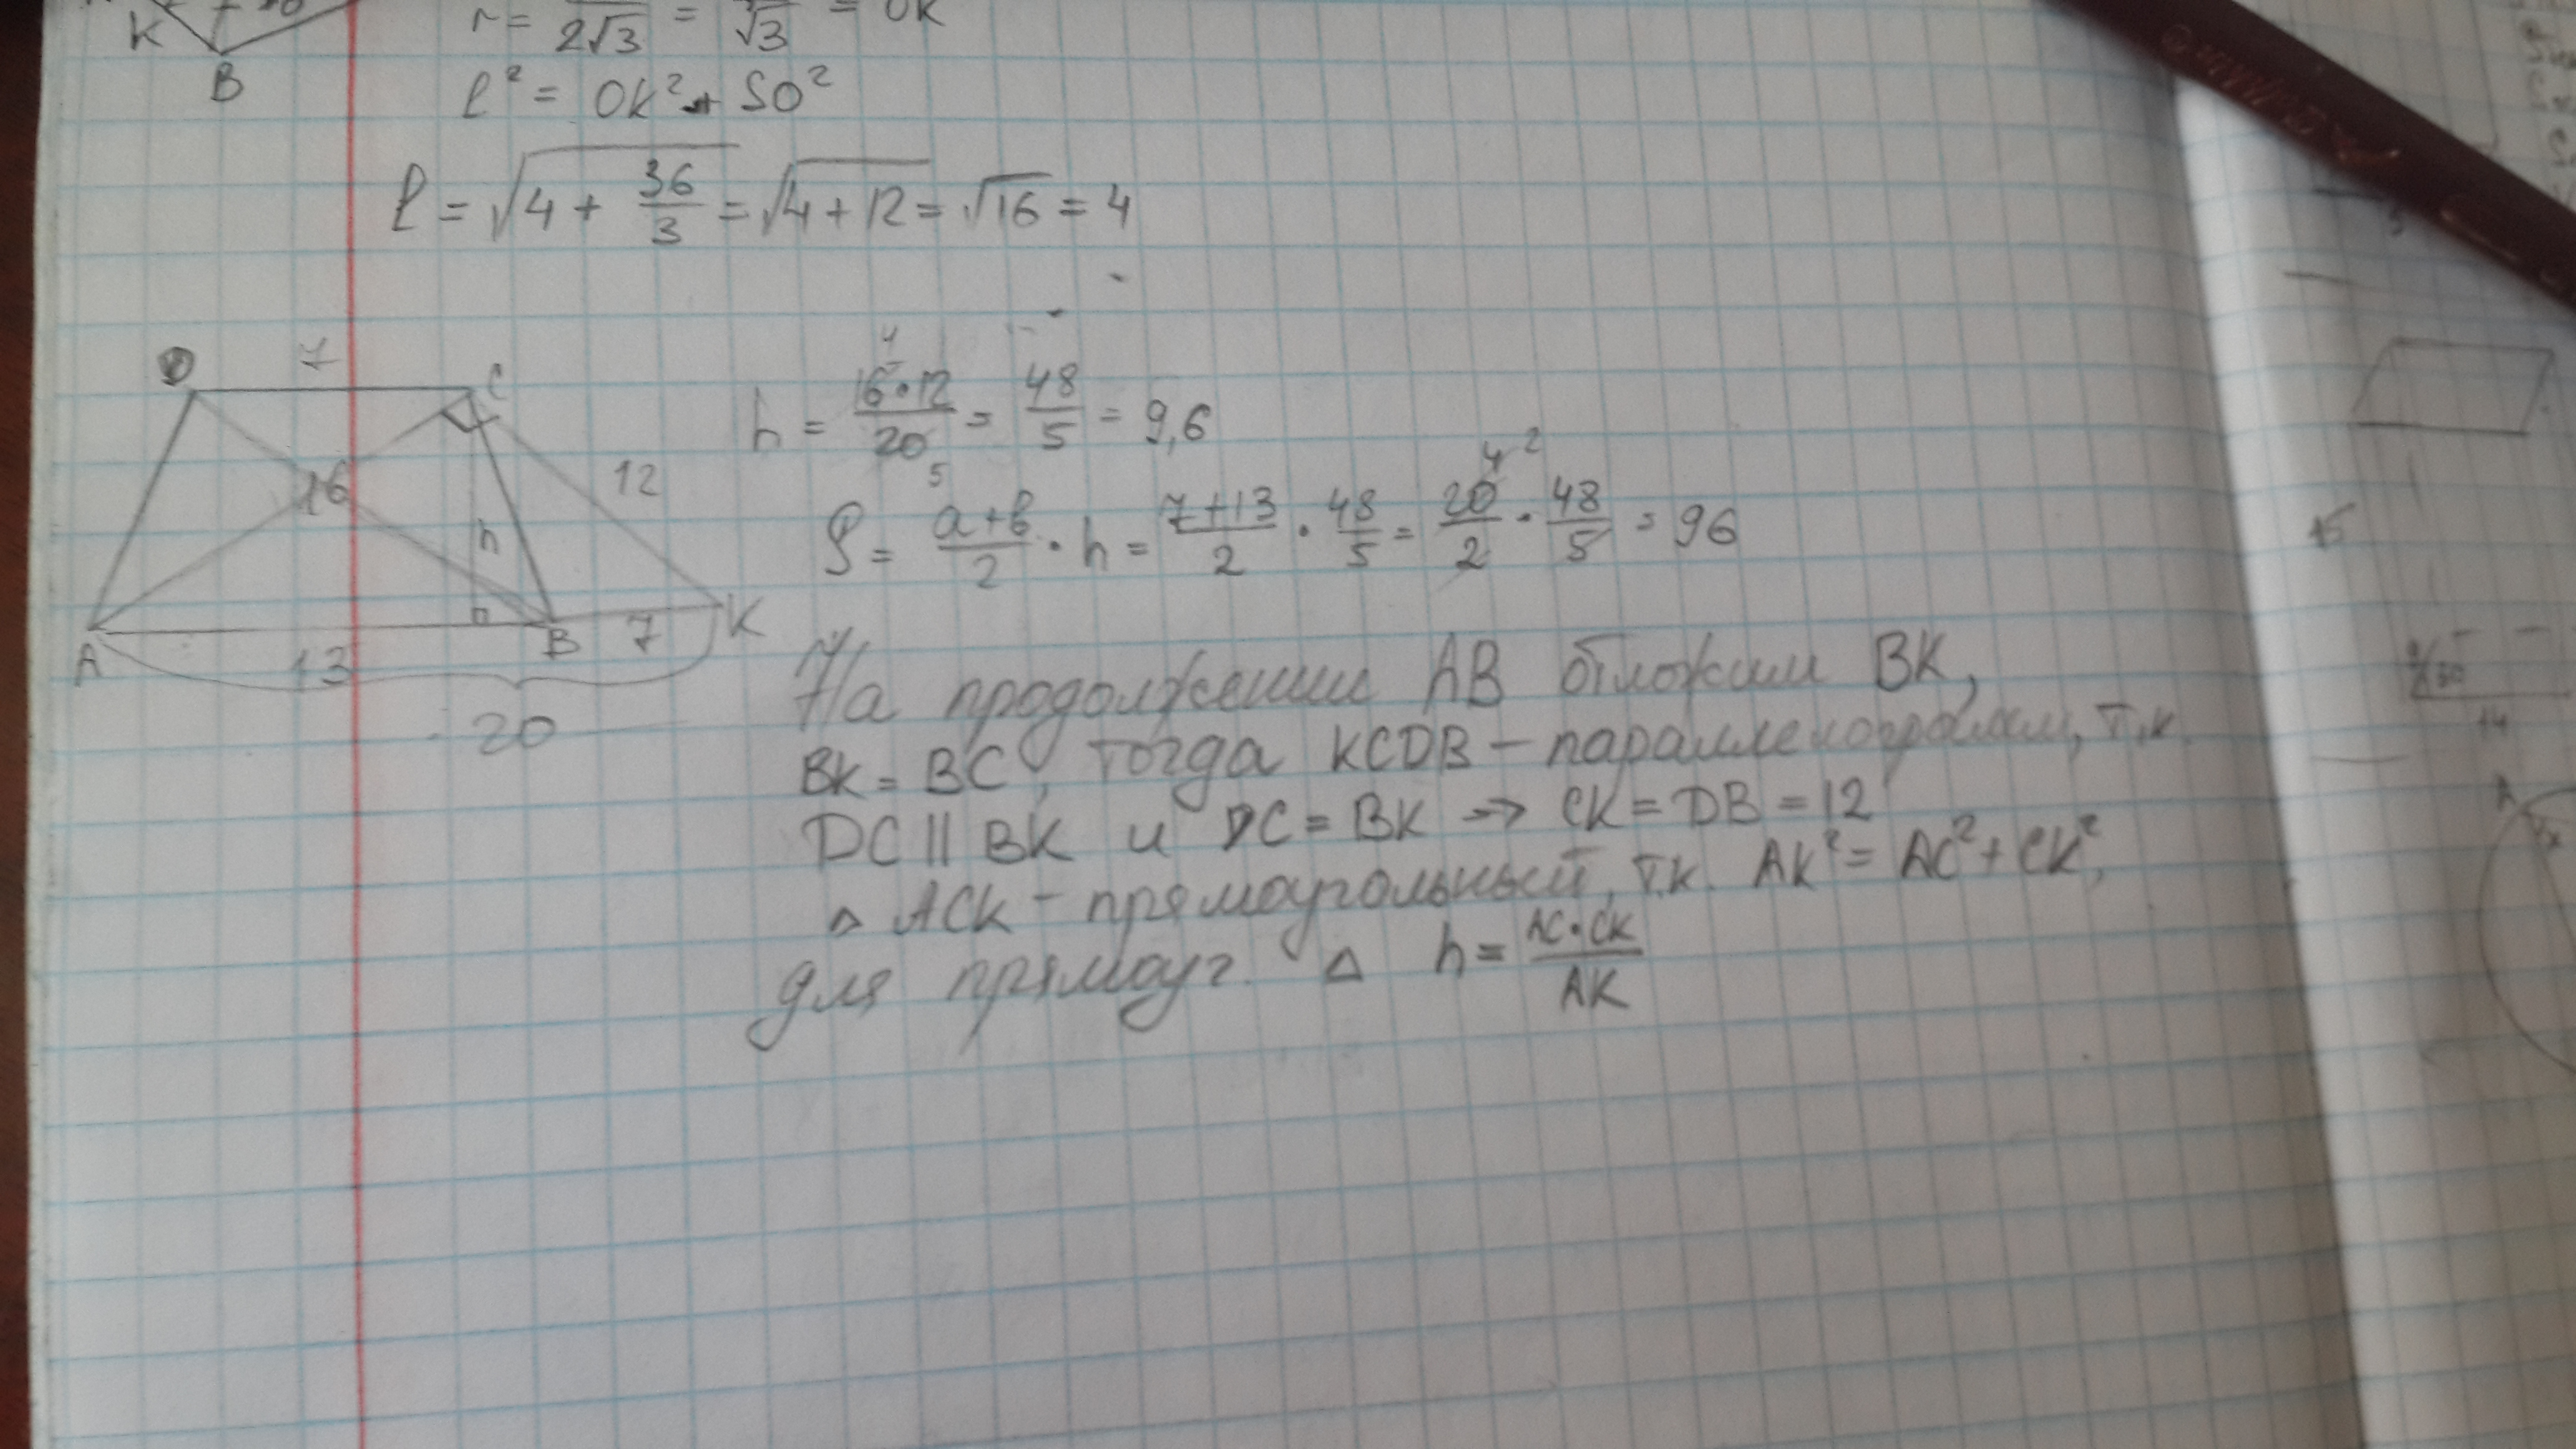 K
B
r = 2√3 = √3 = OK
l² = OK² + SO²
l = √(4 + 36/3) = √(4+12) = √16 = 4
D 7 C
16 12
h
A 13 B 7 K
20
h = 16·12/20 = 48/5 = 9,6
4
5
S = a+b/2 · h = 7+13/2 · 48/5 = 20/2 · 48/5 = 96
4 2
На продолжении AB отложим BK,
BK = BC, тогда KCDB – параллелограмм, т.к.
DC || BK и DC = BK => CK = DB = 12
△ ACK – прямоугольный, т.к. AK² = AC² + CK²,
для прямоуг. △ h = AC·CK/AK
15
14
A